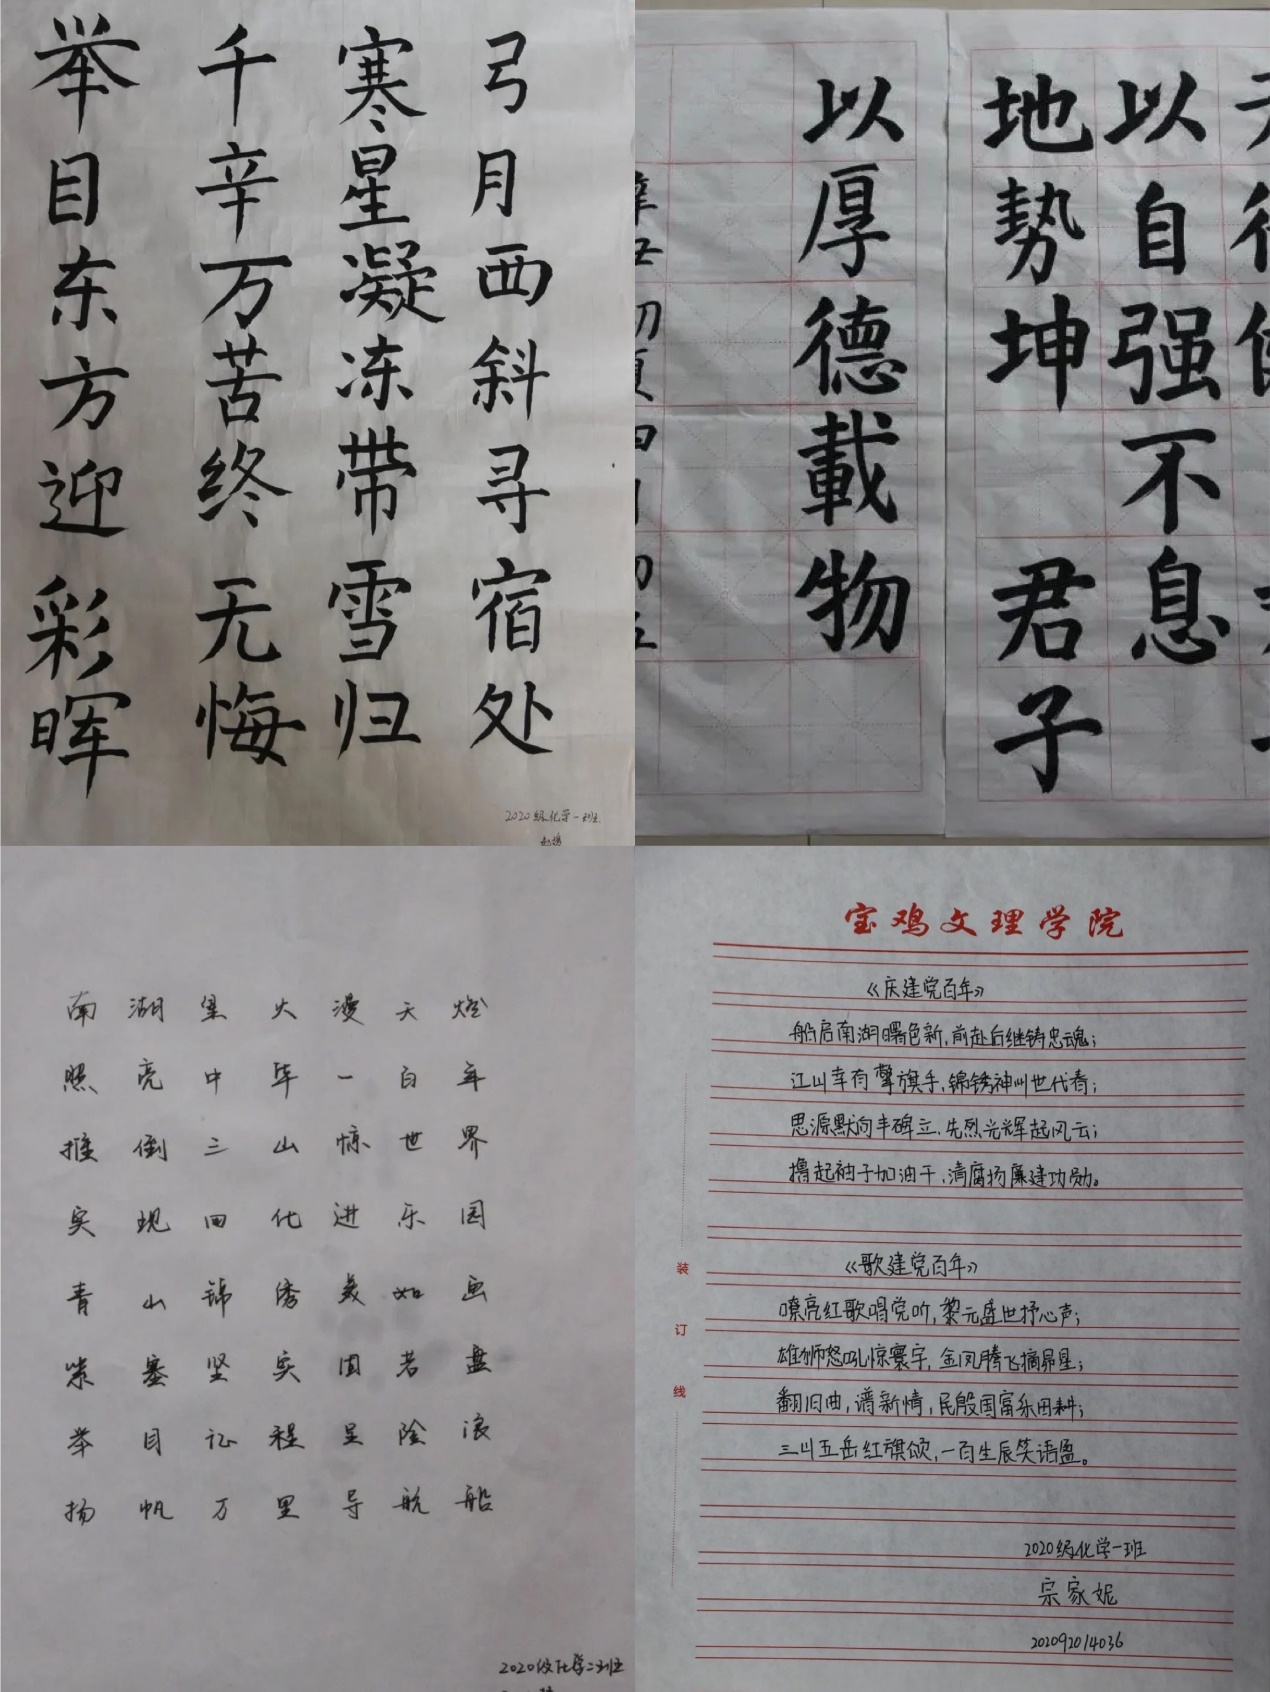 弓月西斜寻宿处
寒星凝冻带雪归
千辛万苦终无悔
举目东方迎彩晖
2020级化学一班
以自强不息
地势坤 君子
以厚德載物
辛丑 初夏 四月 初五
南湖星火漫天燃
照亮中华一百年
推倒三山惊世界
实现四化进乐园
青山锦绣美如画
紫塞坚实固若盘
举目征程呈险浪
扬帆万里导航船
2020级化学二班
宝鸡文理学院
《庆建党百年》
船启南湖曙色新,前赴后继铸忠魂;
江山幸有擎旗手,锦锈神州世代春;
思源默向丰碑立,先烈光辉起风云;
撸起袖子加油干,清腐扬廉建功勋。
《歌建党百年》
嘹亮红歌唱党听,黎元盛世抒心声;
雄狮怒吼惊寰宇,金凤腾飞摘昴星;
翻旧曲,谱新情,民殷国富乐田耕;
三川五岳红旗颂,一百生辰笑语盈。
2020级化学一班
宗家妮
202092014036
装
订
线